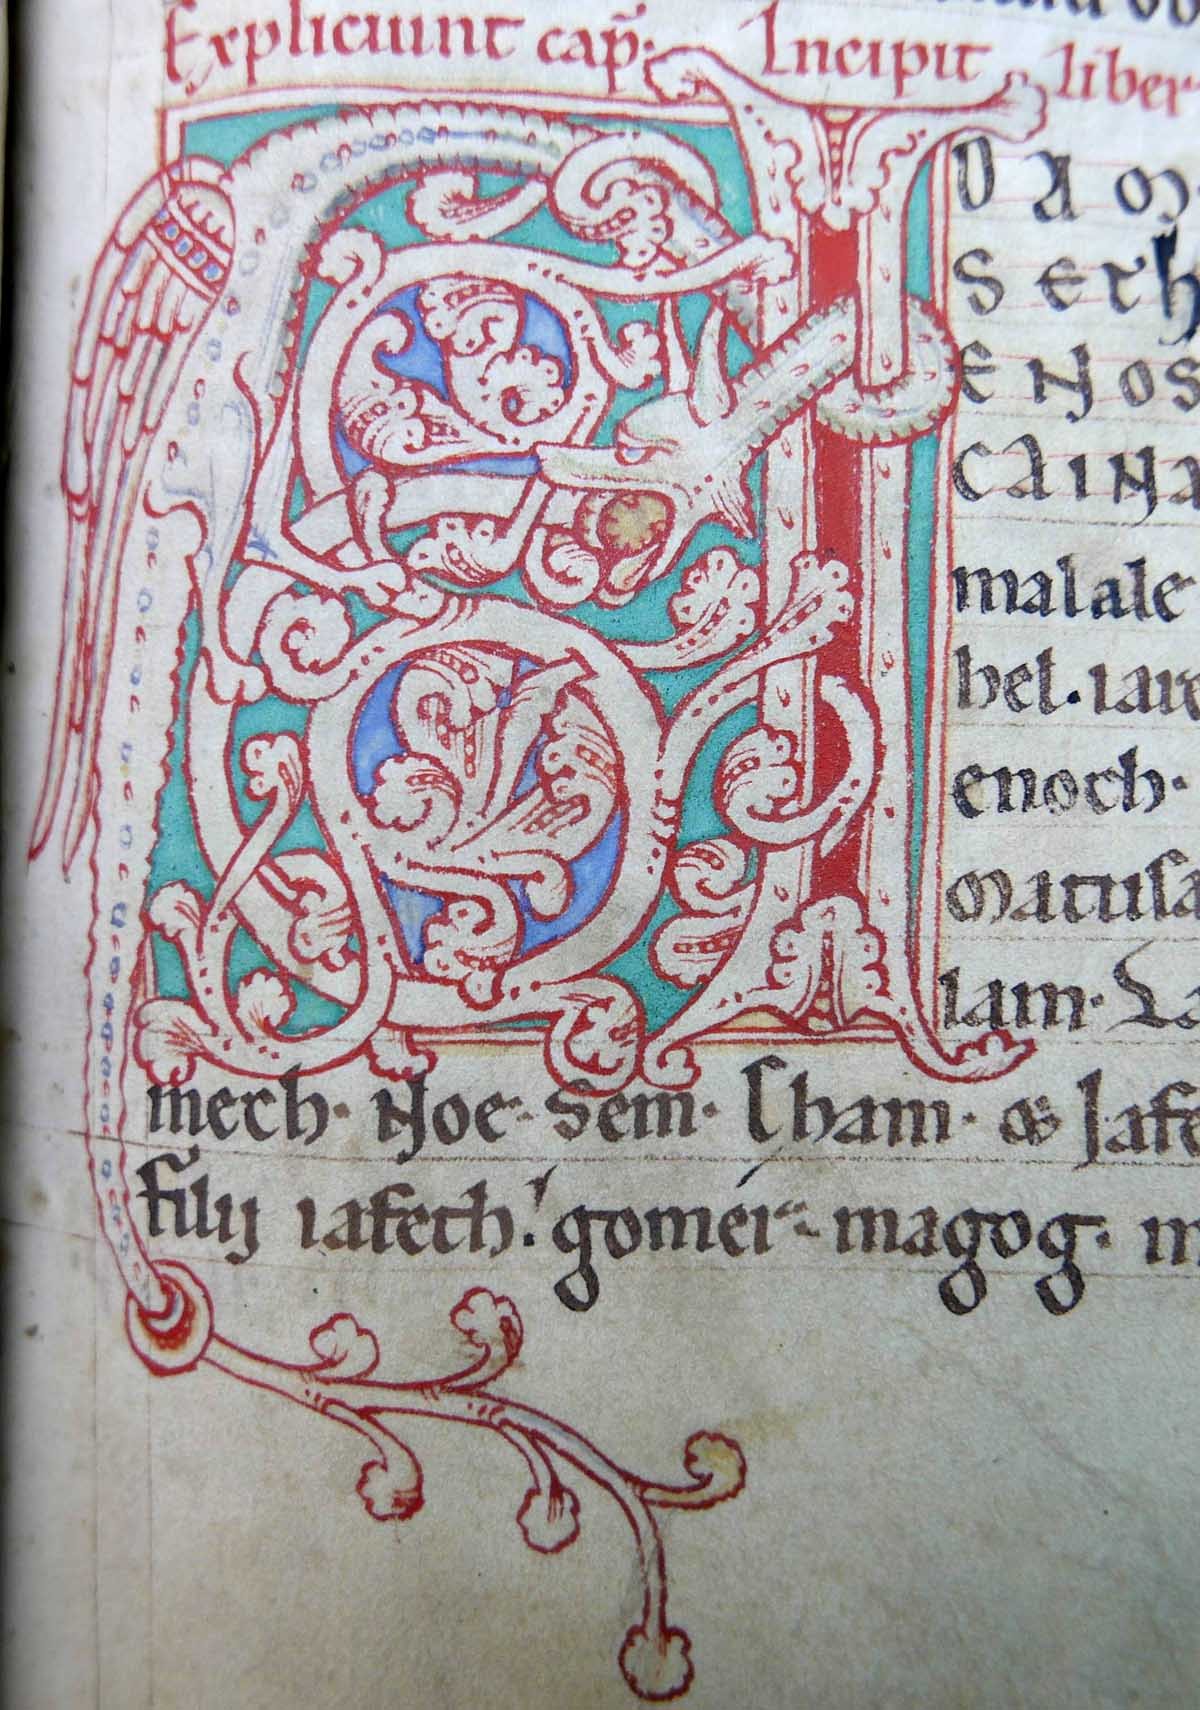 Expliciunt cap̄. Incipit liber
A DAM
SETH
ENOS
CAINA
malale
hel. iare
enoch.
Matusa
lam. La
mech. Noe. Sem. Cham. & Jafe
Filij iafeth. gomer. magog. m